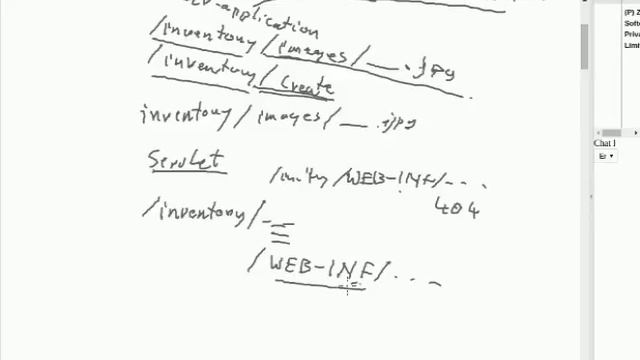 -application
/inventory/images/__.jpg
/inventory/create
inventory/images/__.jpg
Servlet
/WEB-INF/...
404
/inventory/__
/WEB-INF/...
(P) Z
Softw
Priva
Limi
Chat I